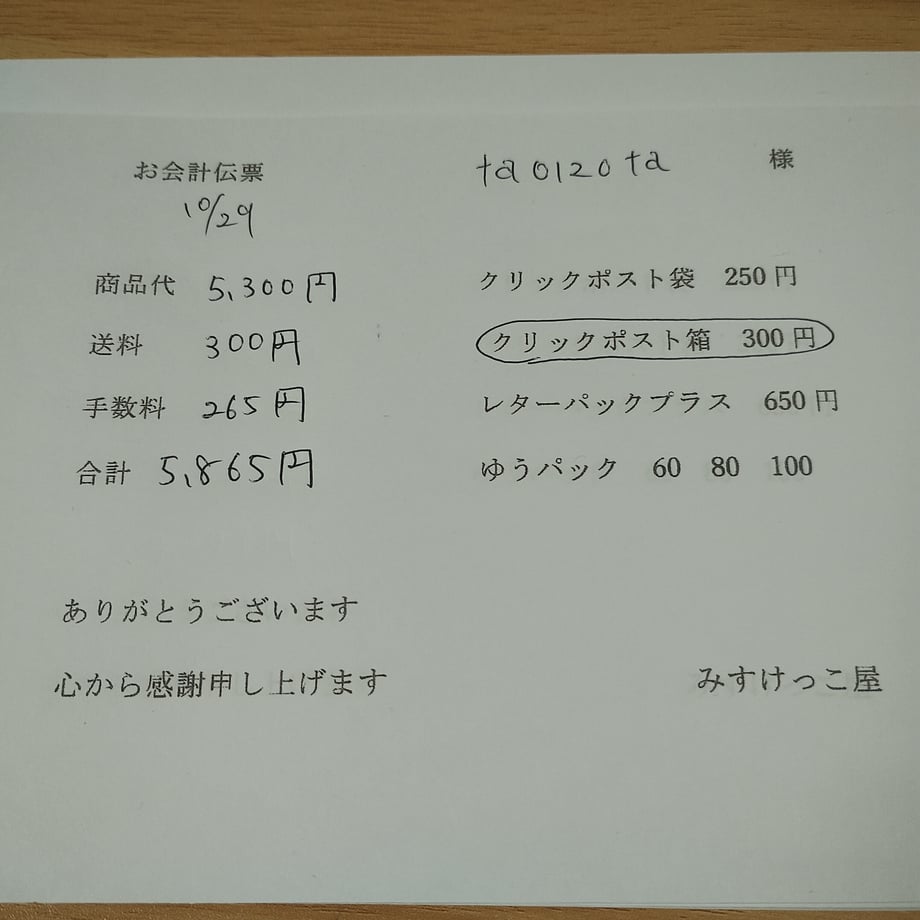 お会計伝票
10/29
商品代 5,300円
送料 300円
手数料 265円
合計 5,865円
ta0120ta 様
クリックポスト袋 250円
クリックポスト箱 300円
レターパックプラス 650円
ゆうパック 60 80 100
ありがとうございます
心から感謝申し上げます
みすけっこ屋